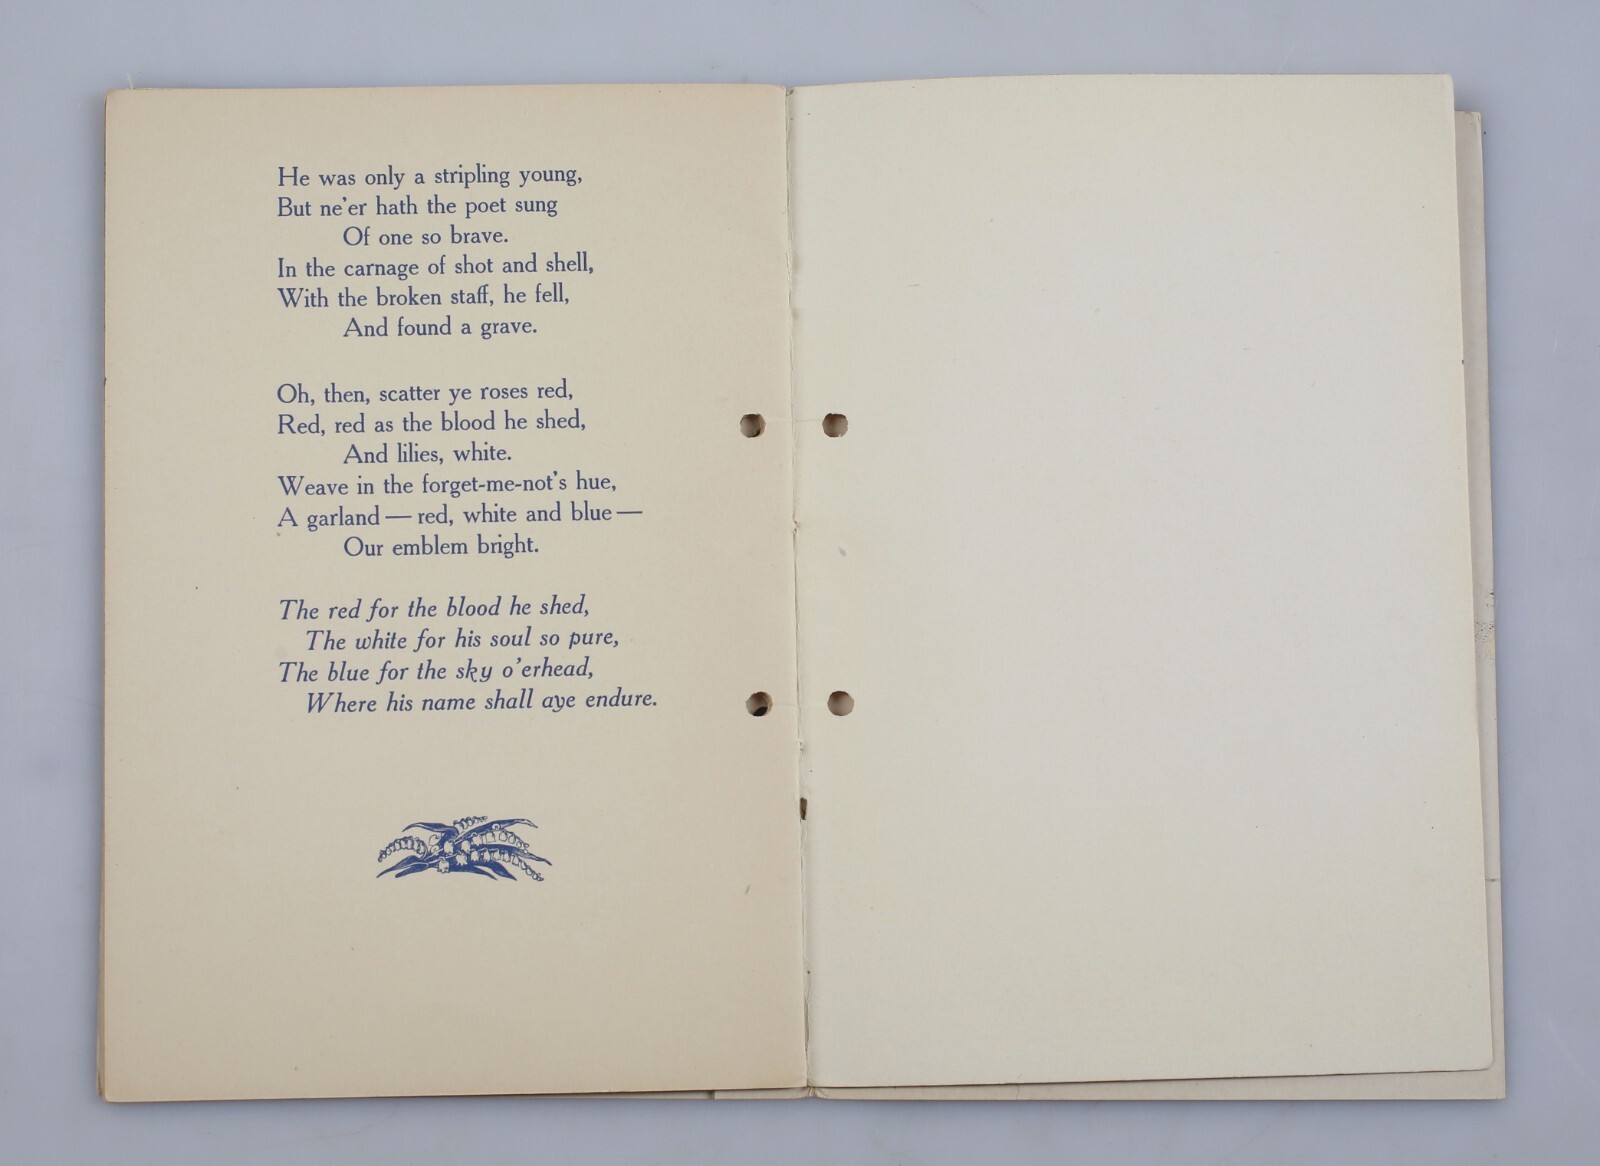 He was only a stripling young,
But ne'er hath the poet sung
Of one so brave.
In the carnage of shot and shell,
With the broken staff, he fell,
And found a grave.
Oh, then, scatter ye roses red,
Red, red as the blood he shed,
And lilies, white.
Weave in the forget-me-not's hue,
A garland — red, white and blue —
Our emblem bright.
The red for the blood he shed,
The white for his soul so pure,
The blue for the sky o'erhead,
Where his name shall aye endure.